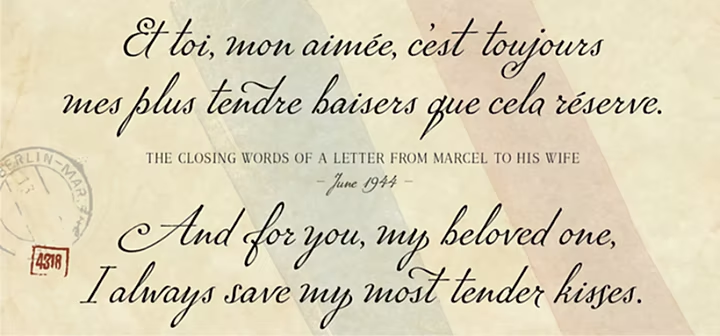 Et toi, mon aimée, c'est toujours
mes plus tendre baisers que cela réserve.
THE CLOSING WORDS OF A LETTER FROM MARCEL TO HIS WIFE
– June 1944 –
BERLIN-MAR
4318
And for you, my beloved one,
I always save my most tender kisses.